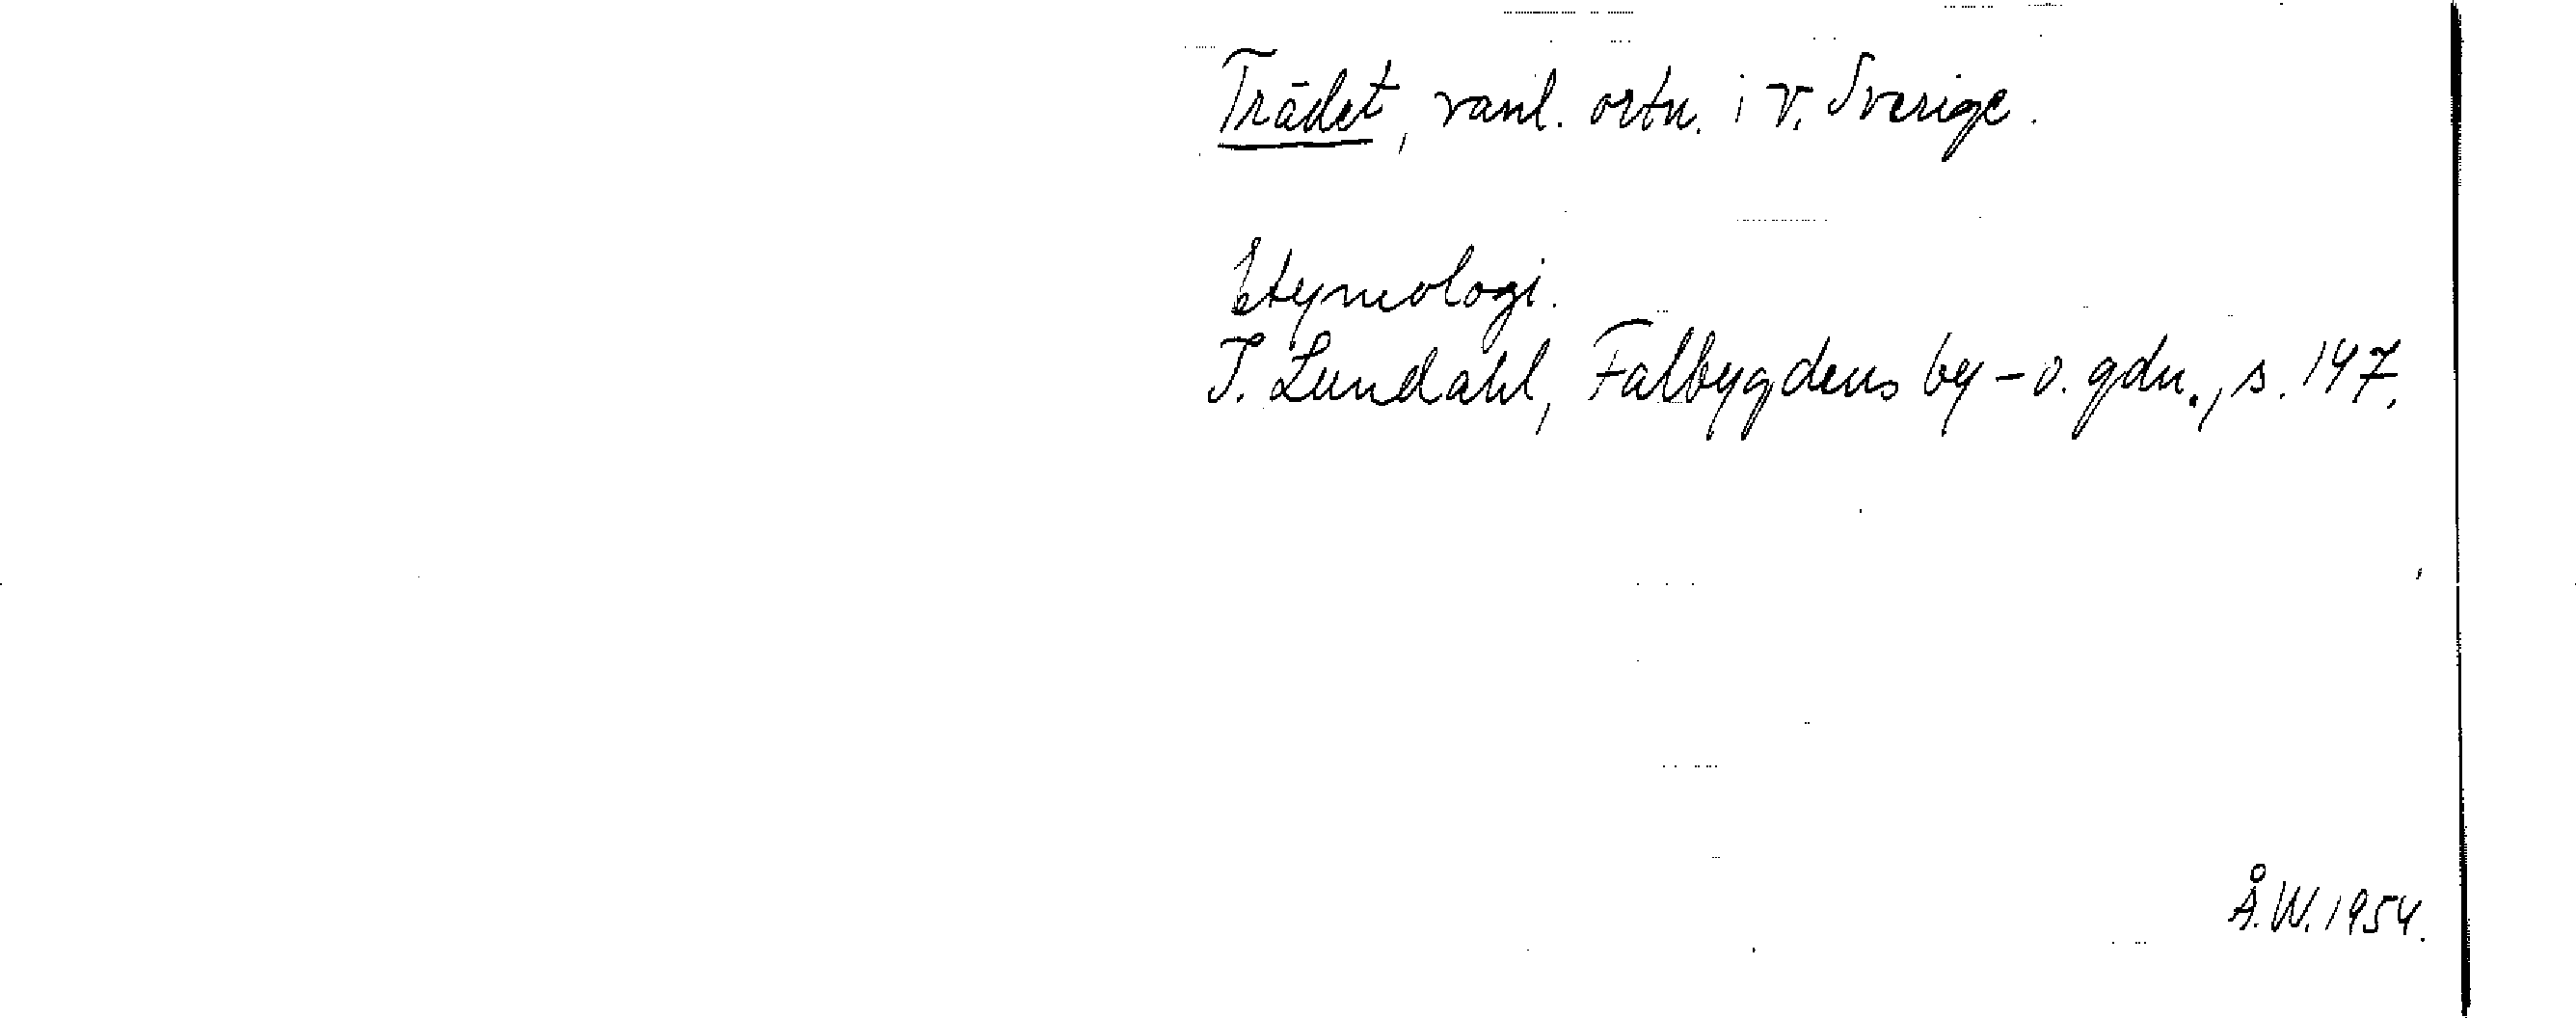 Trädet, vanl. ortn. i v. Sverige.
Etymologi.
I. Lundahl, Falbygdens by- o. gdn., s. 147.
Å.W. 1954.